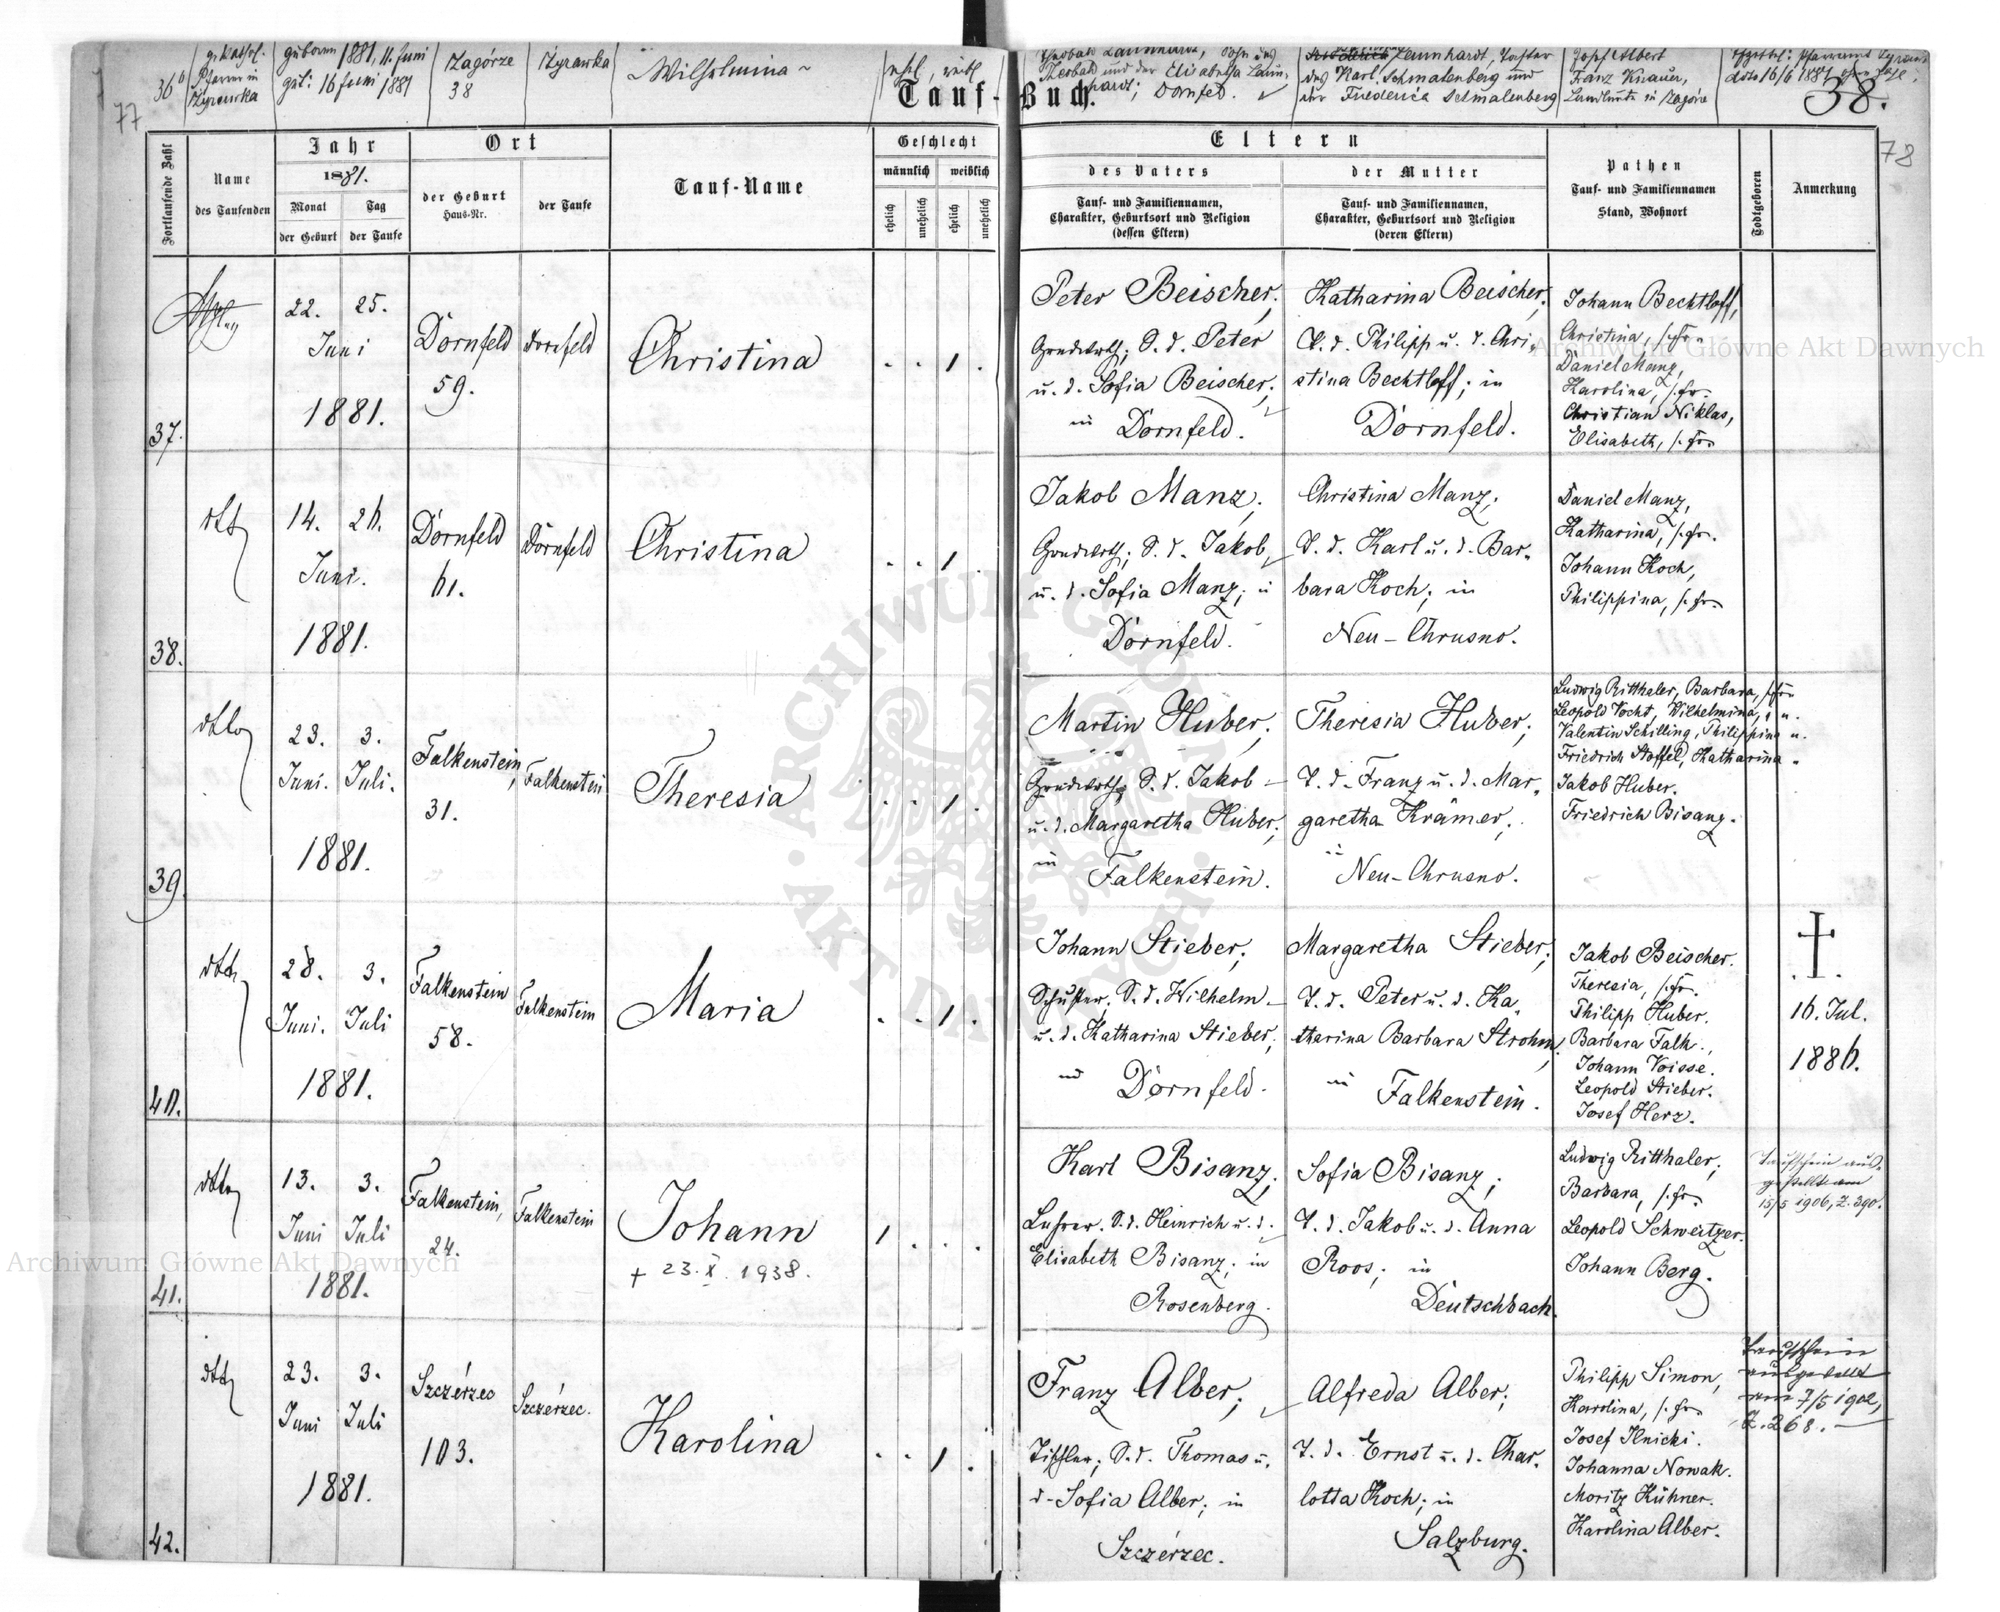 77
36b
gr. kathol.
Pfarrer in
Żyrawka
geboren 1881, 11. Juni
get: 16 Juni 1881
Zagórze
38
Żyrawka
Wilhelmina
Tauf-Buch.
Theobald und der Elisabetha
Dornfeld.
Lennhardt, Tochter
des Karl Schmalenberg und
der Friederica Schmalenberg
Josef Albert
Franz Knauer,
Landleute in Zagórze
dto 16/6 1881
38.
78
Fortlaufende Zahl
Name
des Taufenden
Jahr
1881.
Monat
der Geburt
Tag
der Taufe
Ort
der Geburt
Haus-Nr.
der Taufe
Tauf-Name
Geschlecht
männlich
weiblich
ehelich
unehelich
ehelich
unehelich
Eltern
des Vaters
Tauf- und Familiennamen,
Charakter, Geburtsort und Religion
(dessen Eltern)
der Mutter
Tauf- und Familiennamen,
Charakter, Geburtsort und Religion
(deren Eltern)
Pathen
Tauf- und Familiennamen
Stand, Wohnort
Todtgeboren
Anmerkung
37.
22. 25.
Juni
1881.
Dornfeld
59.
Dornfeld
Christina
. . 1 .
Peter Beischer,
Grundwirth; S. d. Peter
u. d. Sofia Beischer;
in Dornfeld.
Katharina Beischer,
T. d. Philipp u. d. Chri-
stina Bechtloff; in
Dornfeld.
Johann Bechtloff,
Christina, s. Fr.
Daniel Manz,
Karolina, s. Fr.
Christian Niklas,
Elisabeth, s. Fr.
38.
dtto
14. 26.
Juni.
1881.
Dornfeld
61.
Dornfeld
Christina
. . 1 .
Jakob Manz,
Grundwirth; S. d. Jakob
u. d. Sofia Manz; in
Dornfeld.
Christina Manz;
T. d. Karl u. d. Bar-
bara Koch; in
Neu-Chrusno.
Daniel Manz,
Katharina, s. Fr.
Johann Koch,
Philippina, s. Fr.
39.
dtto
23. 3.
Juni. Juli.
1881.
Falkenstein,
31.
Falkenstein
Theresia
. . 1 .
Martin Huber,
Grundwirth, S. d. Jakob
u. d. Margaretha Huber;
in
Falkenstein.
Theresia Huber;
T. d. Franz u. d. Mar-
garetha Krämer;
in
Neu-Chrusno.
Ludwig Ritthaler, Barbara, s. Fr.
Leopold Vocht, Wilhelmina, " "
Valentin Schilling, Philippina "
Friedrich Stoffel, Katharina "
Jakob Huber.
Friedrich Bisanz.
40.
dtto
28. 3.
Juni. Juli
1881.
Falkenstein
58.
Falkenstein
Maria
. . 1 .
Johann Stieber;
Schuster; S. d. Wilhelm
u. d. Katharina Stieber;
in Dornfeld.
Margaretha Stieber;
T. d. Peter u. d. Ka-
tharina Barbara Strohm;
in Falkenstein.
Jakob Beischer.
Theresia, s. Fr.
Philipp Huber.
Barbara Falk.
Johann Voisse.
Leopold Stieber.
Josef Herz.
†
16. Jul.
1886.
41.
dtto
13. 3.
Juni Juli
1881.
Falkenstein,
24.
Falkenstein
Johann
+ 23. X. 1938.
1 . . .
Karl Bisanz;
Lehrer. S. d. Heinrich u. d.
Elisabeth Bisanz; in
Rosenberg.
Sofia Bisanz;
T. d. Jakob u. d. Anna
Roos; in
Deutschbach.
Ludwig Ritthaler,
Barbara, s. Fr.
Leopold Schweitzer.
Johann Berg.
Taufschein aus-
gestellt am
15/5 1906, Z. 390.
42.
dtto
23. 3.
Juni Juli
1881.
Szczérzec
103.
Szczérzec.
Karolina
. . 1 .
Franz Alber;
Tischler; S. d. Thomas u.
d. Sofia Alber; in
Szczérzec.
Alfreda Alber;
T. d. Ernst u. d. Char-
lotta Koch; in
Salzburg.
Philipp Simon,
Karolina, s. Fr.
Josef Ilnicki.
Johanna Nowak.
Moritz Kühner.
Karolina Alber.
Taufschein
ausgestellt
am 7/5 1902,
Z. 268.
Archiwum Główne Akt Dawnych
Archiwum Główne Akt Dawnych
ARCHIWUM GŁÓWNE AKT DAWNYCH